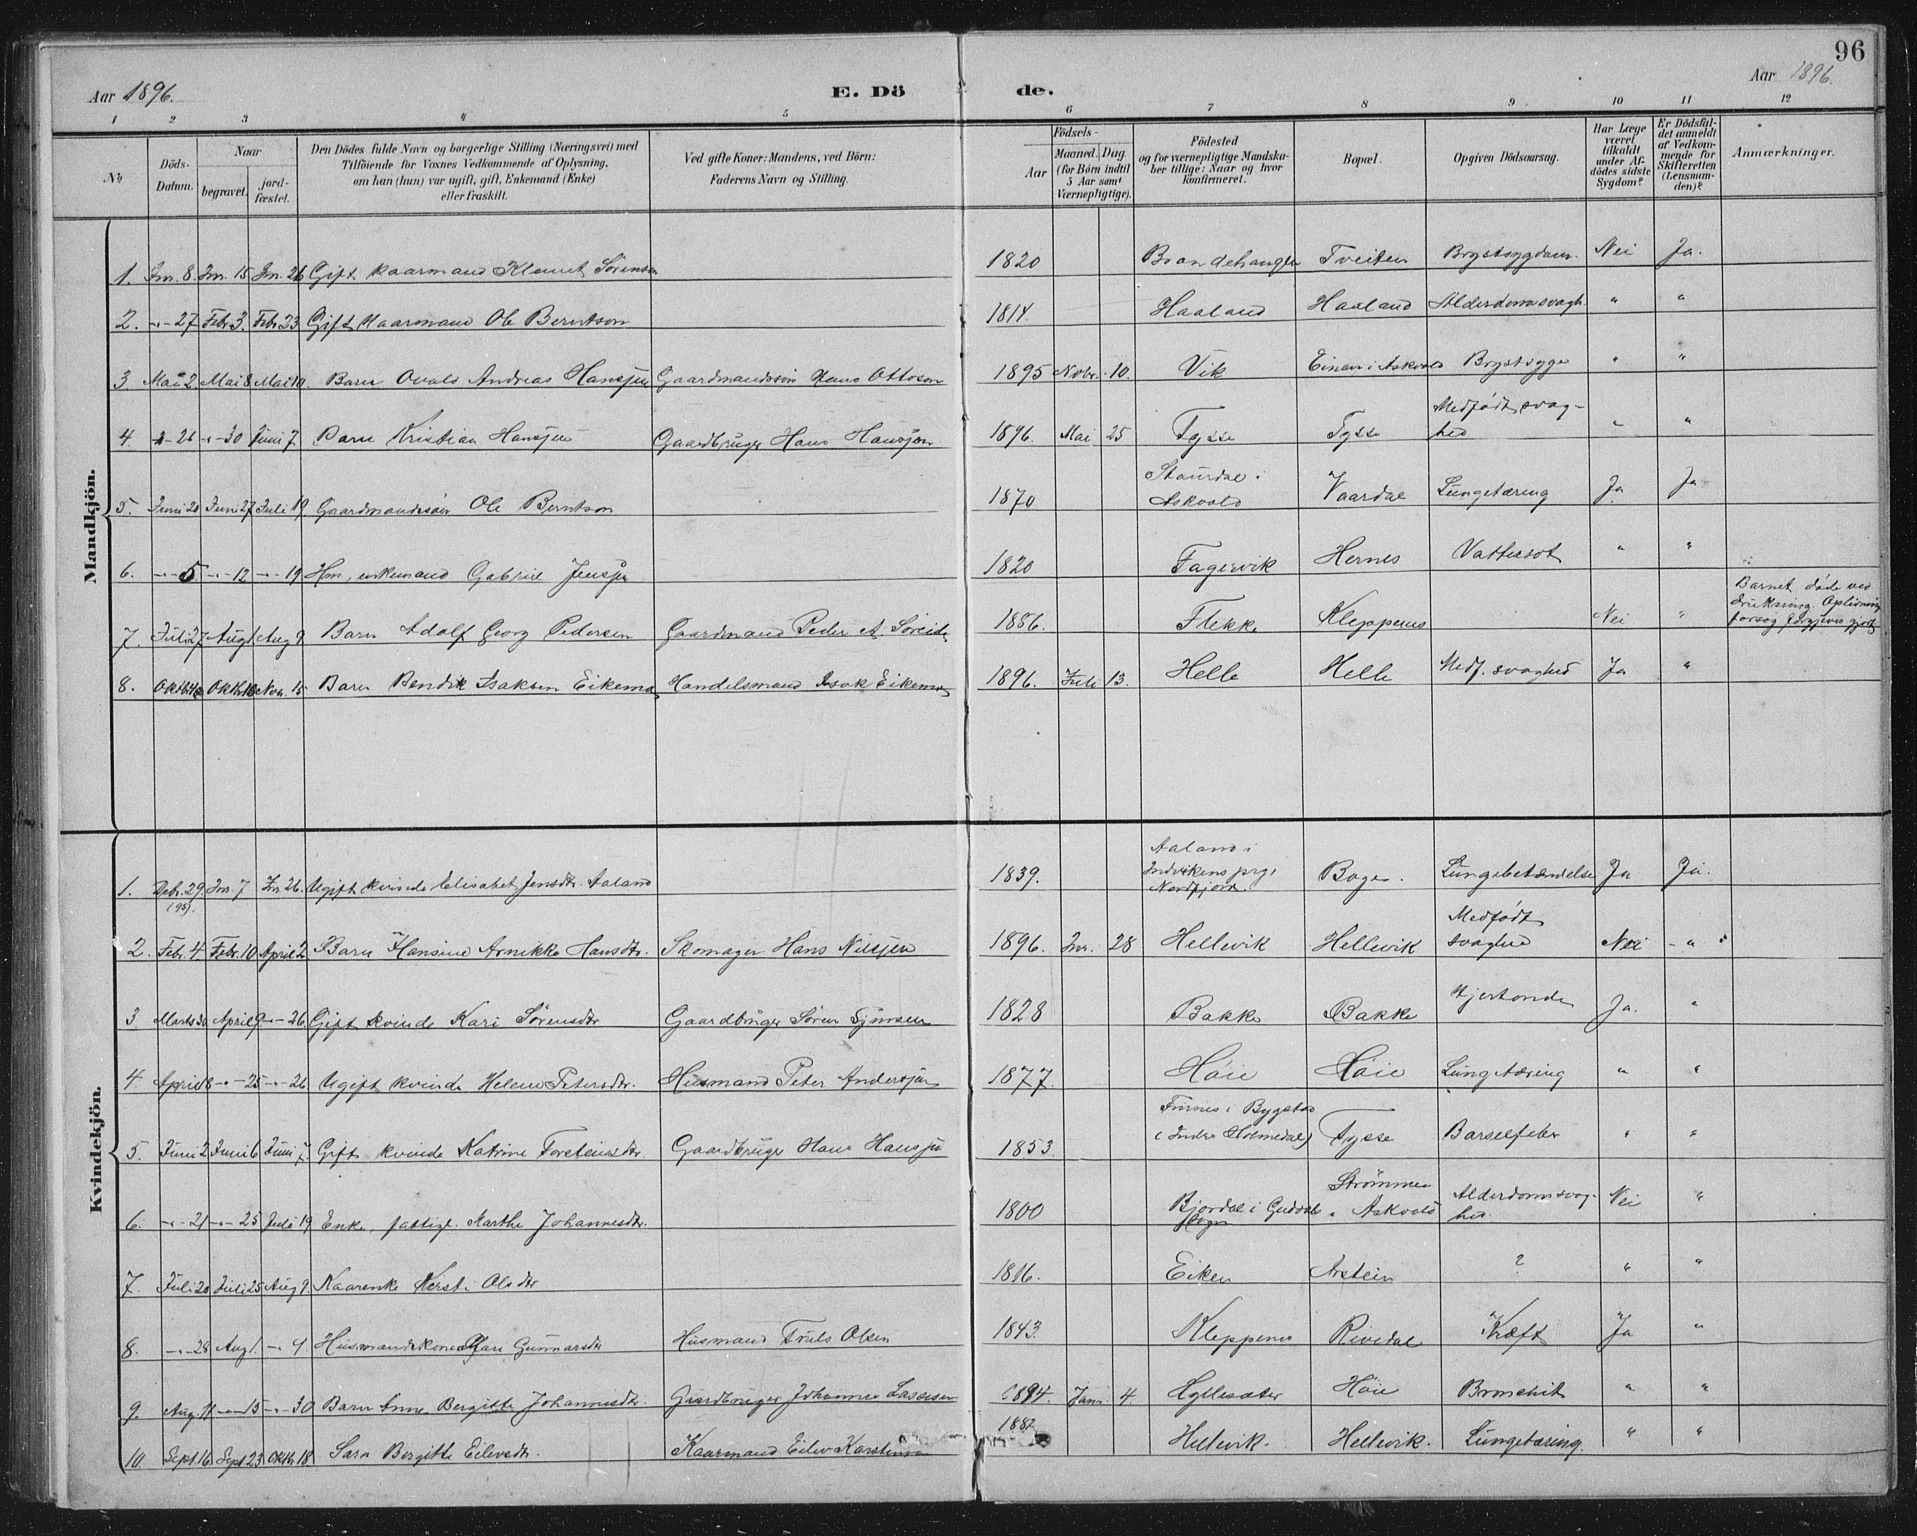 96
Aar 1896.
E. Dö de.
Aar 1896.
1 2 3 4 5 6 7 8 9 10 11 12
No
Döds-Datum.
Naar
begravet.
jord-fæstet.
Den Dödes fulde Navn og borgerlige Stilling (Næringsvei) med
Tilföiende for Voxnes Vedkommende af Oplysning,
om han (hun) var ugift, gift, Enkemand (Enke)
eller fraskilt.
Ved gifte Koner: Mandens, ved Börn:
Faderens Navn og Stilling.
Födsels-
Aar
Maaned. Dag
(for Börn indtil
5 Aar samt
Værnepligtige).
Födested
og for værnepligtige Mandska-
ber tillige: Naar og hvor
konfirmeret.
Bopæl.
Opgiven Dödsaarsag.
Har Læge
været
tilkaldt
under Af-
dödes sidste
Sygdom?
Er Dödsfal-
det anmeldt
af Vedkom-
mende for
Skifteretten
(Lensman-
den)?
Anmærkninger.
Mandkjön.
1. Jnr. 8. Jnr. 15 Jnr. 26 Gift kaarmand Klemet Sörensen 1820 Tveiten Brystsygdom. Nei Ja.
2. -"- 27 Febr 3. Febr 23 Gift kaarmand Ole Berntson 1814. Haaland Haaland Alderdomssvagh. " "
3. Mai 2. Mai 8 Mai 10. Barn Ovald Andreas Hansen Gaardmandssön Hans Ottoson 1895 Novbr. 10. Vik Einan i Askvold Brystsyge " "
4 -"- 26 -"- 30 Juni 7. Barn Kristian Hansen Gaardbruger Hans Hansen 1896. Mai 25 Tysse Tysse Medfødt svag-hed " "
5. Juni 20 Juni 27 Juli 19 Gaardmandssön Ole Berntson 1870 Staurdal i Askvold Vaardal Lungetæring Ja Ja
6. -"- 5. -"- 12 -"- 19 Hm, enkemand Gabriel Jensen 1820 Fagervik Hernes Vattersot " "
7. Juli 27 Aug 1 Aug 9 Barn Adolf Georg Pedersen Gaardmand Peder A. Söreide 1886. Flekke Kleppenes Nei " Barnet døde ved drukning. Oplivningsforsøg forgjæves gjort
8. Oktbr Oktbr Nvr. 15 Barn Bendik Isaksen Eikemo Handelsmand Isak Eikemo 1896. Juli 13. Helle Helle Medf. svaghed Ja "
Kvindekjön.
1. Debr. 29 (95). Jnr. 7 Jnr. 26. Ugift kvinde Elisabet Jensdtr. Aaland 1839. Aaland i Indvikens prg, Nordfjord Lungebetændelse Ja Ja.
2. Febr. 4 Febr. 10 April 2 Barn Hansine Hansdtr. Skomager Hans Nilsen 1896. Jnr. 28 Hellevik Hellevik Medfødt svaghed Nei - " -
3 Marts 30 April 9 -"- 26 Gift kvinde Kari Sörensdtr Gaardbruger Sören 1828 Bakke Bakke Hjertonde Ja. "
4. April 8 -"- 25 -"- 26 Ugift kvinde Helene Petersdtr. Husmand Peter Andersen 1877. Höie Höie Lungetæring " "
5. Juni 2 Juni 6 Juni 7. Gift kvinde Katrine Gaardbruger Hans Hansen 1853. Furnes i Bygstad (Indre Holmedal) Tysse Barselfeber " "
6. -"- 21 -"- 25 Juli 19 Enke, fattigl. Marthe Johannesdtr. 1800 Bjordal i Guddal Sogn Strömmen i Askvold Alderdomssvag-hed. Nei "
7. Juli 20 Juli 25 Aug 9. Kaarenke Kersti Olsdtr 1816. Eiken Arstein ? " "
8. -"- 28 Aug 1. -"- 9. Husmandskone Mari Gunnarsdtr Husmand Truls Olsen 1843. Kleppenes Rivedal Kræft Ja "
9. Aug. 11 -"- 15 -"- 30 Barn Anne Bergitte Johannesdtr. Gaardbruger Johannes Lassesen 1894. Janr. 4. Hyllesæter Höie Bronchit " "
10. Sept. 16 Sept. 23 Oktbr 18 Sara Bergitte Eilevsdtr. Kaarmand Eilev Karstensen 1882 Hellevik. Hellevik. Lungetæring. " "